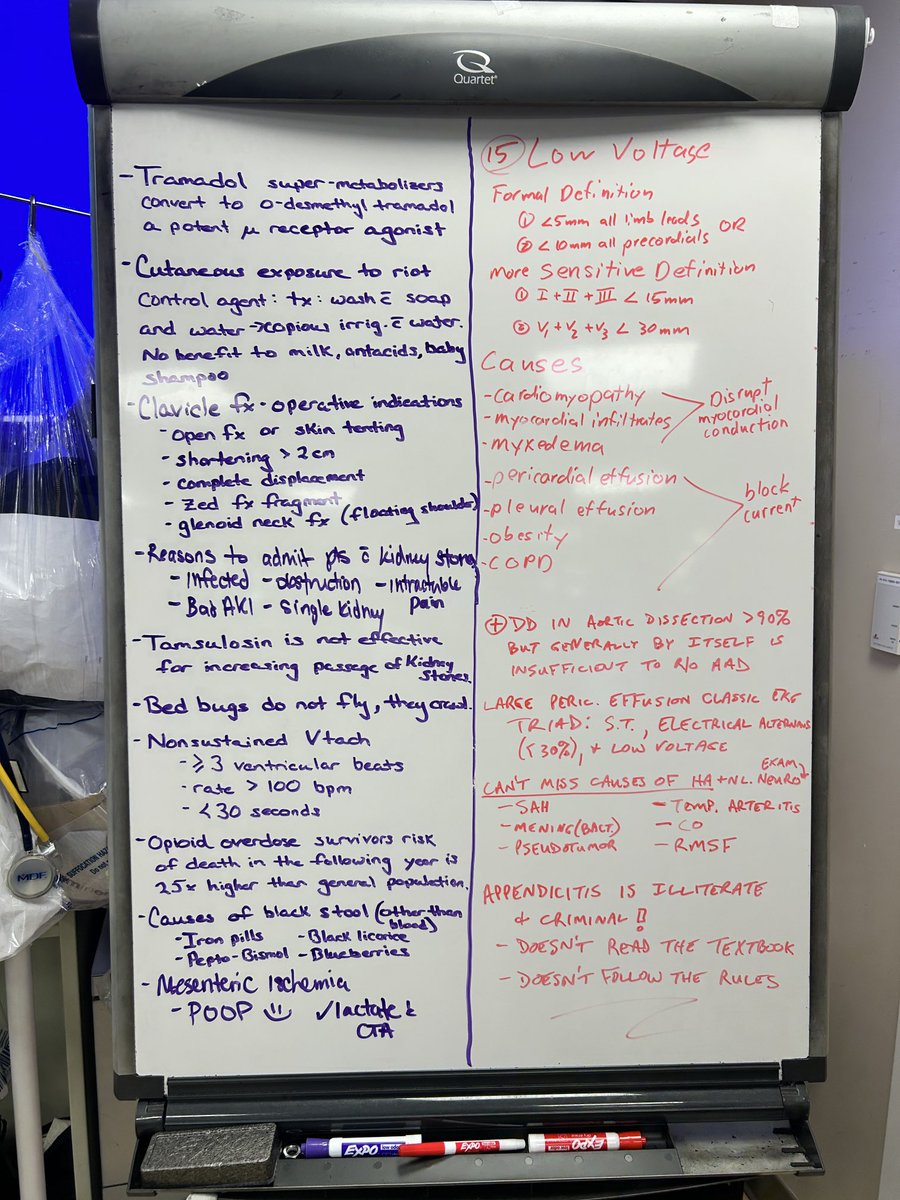 Q
Quartet
- Tramadol super-metabolizers
convert to o-desmethyl tramadol
a potent μ receptor agonist
- Cutaneous exposure to riot
control agent: tx: wash c̄ soap
and water → copious irrig. c̄ water.
No benefit to milk, antacids, baby
shampoo
- Clavicle fx - operative indications
- open fx or skin tenting
- shortening > 2cm
- complete displacement
- Zed fx fragment
- glenoid neck fx (floating shoulder)
- Reasons to admit pts c̄ kidney stone
- Infected - obstruction - intractable pain
- Bad AKI - Single kidney
- Tamsulosin is not effective
for increasing passage of Kidney
Stones.
- Bed bugs do not fly, they crawl.
- Nonsustained Vtach
- ≥ 3 ventricular beats
- rate > 100 bpm
- < 30 seconds
- Opioid overdose survivors risk
of death in the following year is
25x higher than general population.
- Causes of black stool (other than
blood)
- Iron pills - Black licorice
- Pepto-Bismol - Blueberries
- Mesenteric Ischemia
- POOP ✓ lactate &
CTA
15 Low Voltage
Formal Definition
① <5mm all limb leads OR
② <10mm all precordials
More Sensitive Definition
① I + II + III < 15mm
② V1 + V2 + V3 < 30mm
Causes
- cardiomyopathy
- myocardial infiltrates
- myxedema
Disrupt
myocardial
conduction
- pericardial effusion
- pleural effusion
- obesity
- COPD
block
current
⊕ DD IN AORTIC DISSECTION >90%
BUT GENERALLY BY ITSELF IS
INSUFFICIENT TO R/O AAD
LARGE PERIC. EFFUSION CLASSIC EKG
TRIAD: S.T., ELECTRICAL ALTERNANS
(<30%), + LOW VOLTAGE
CAN'T MISS CAUSES OF HA + NL. NEURO EXAM
- SAH - TEMP. ARTERITIS
- MENING (BACT.) - CO
- PSEUDOTUMOR - RMSF
APPENDICITIS IS ILLITERATE
& CRIMINAL!
- DOESN'T READ THE TEXTBOOK
- DOESN'T FOLLOW THE RULES
MDF
EXPO
EXPO
EXPO